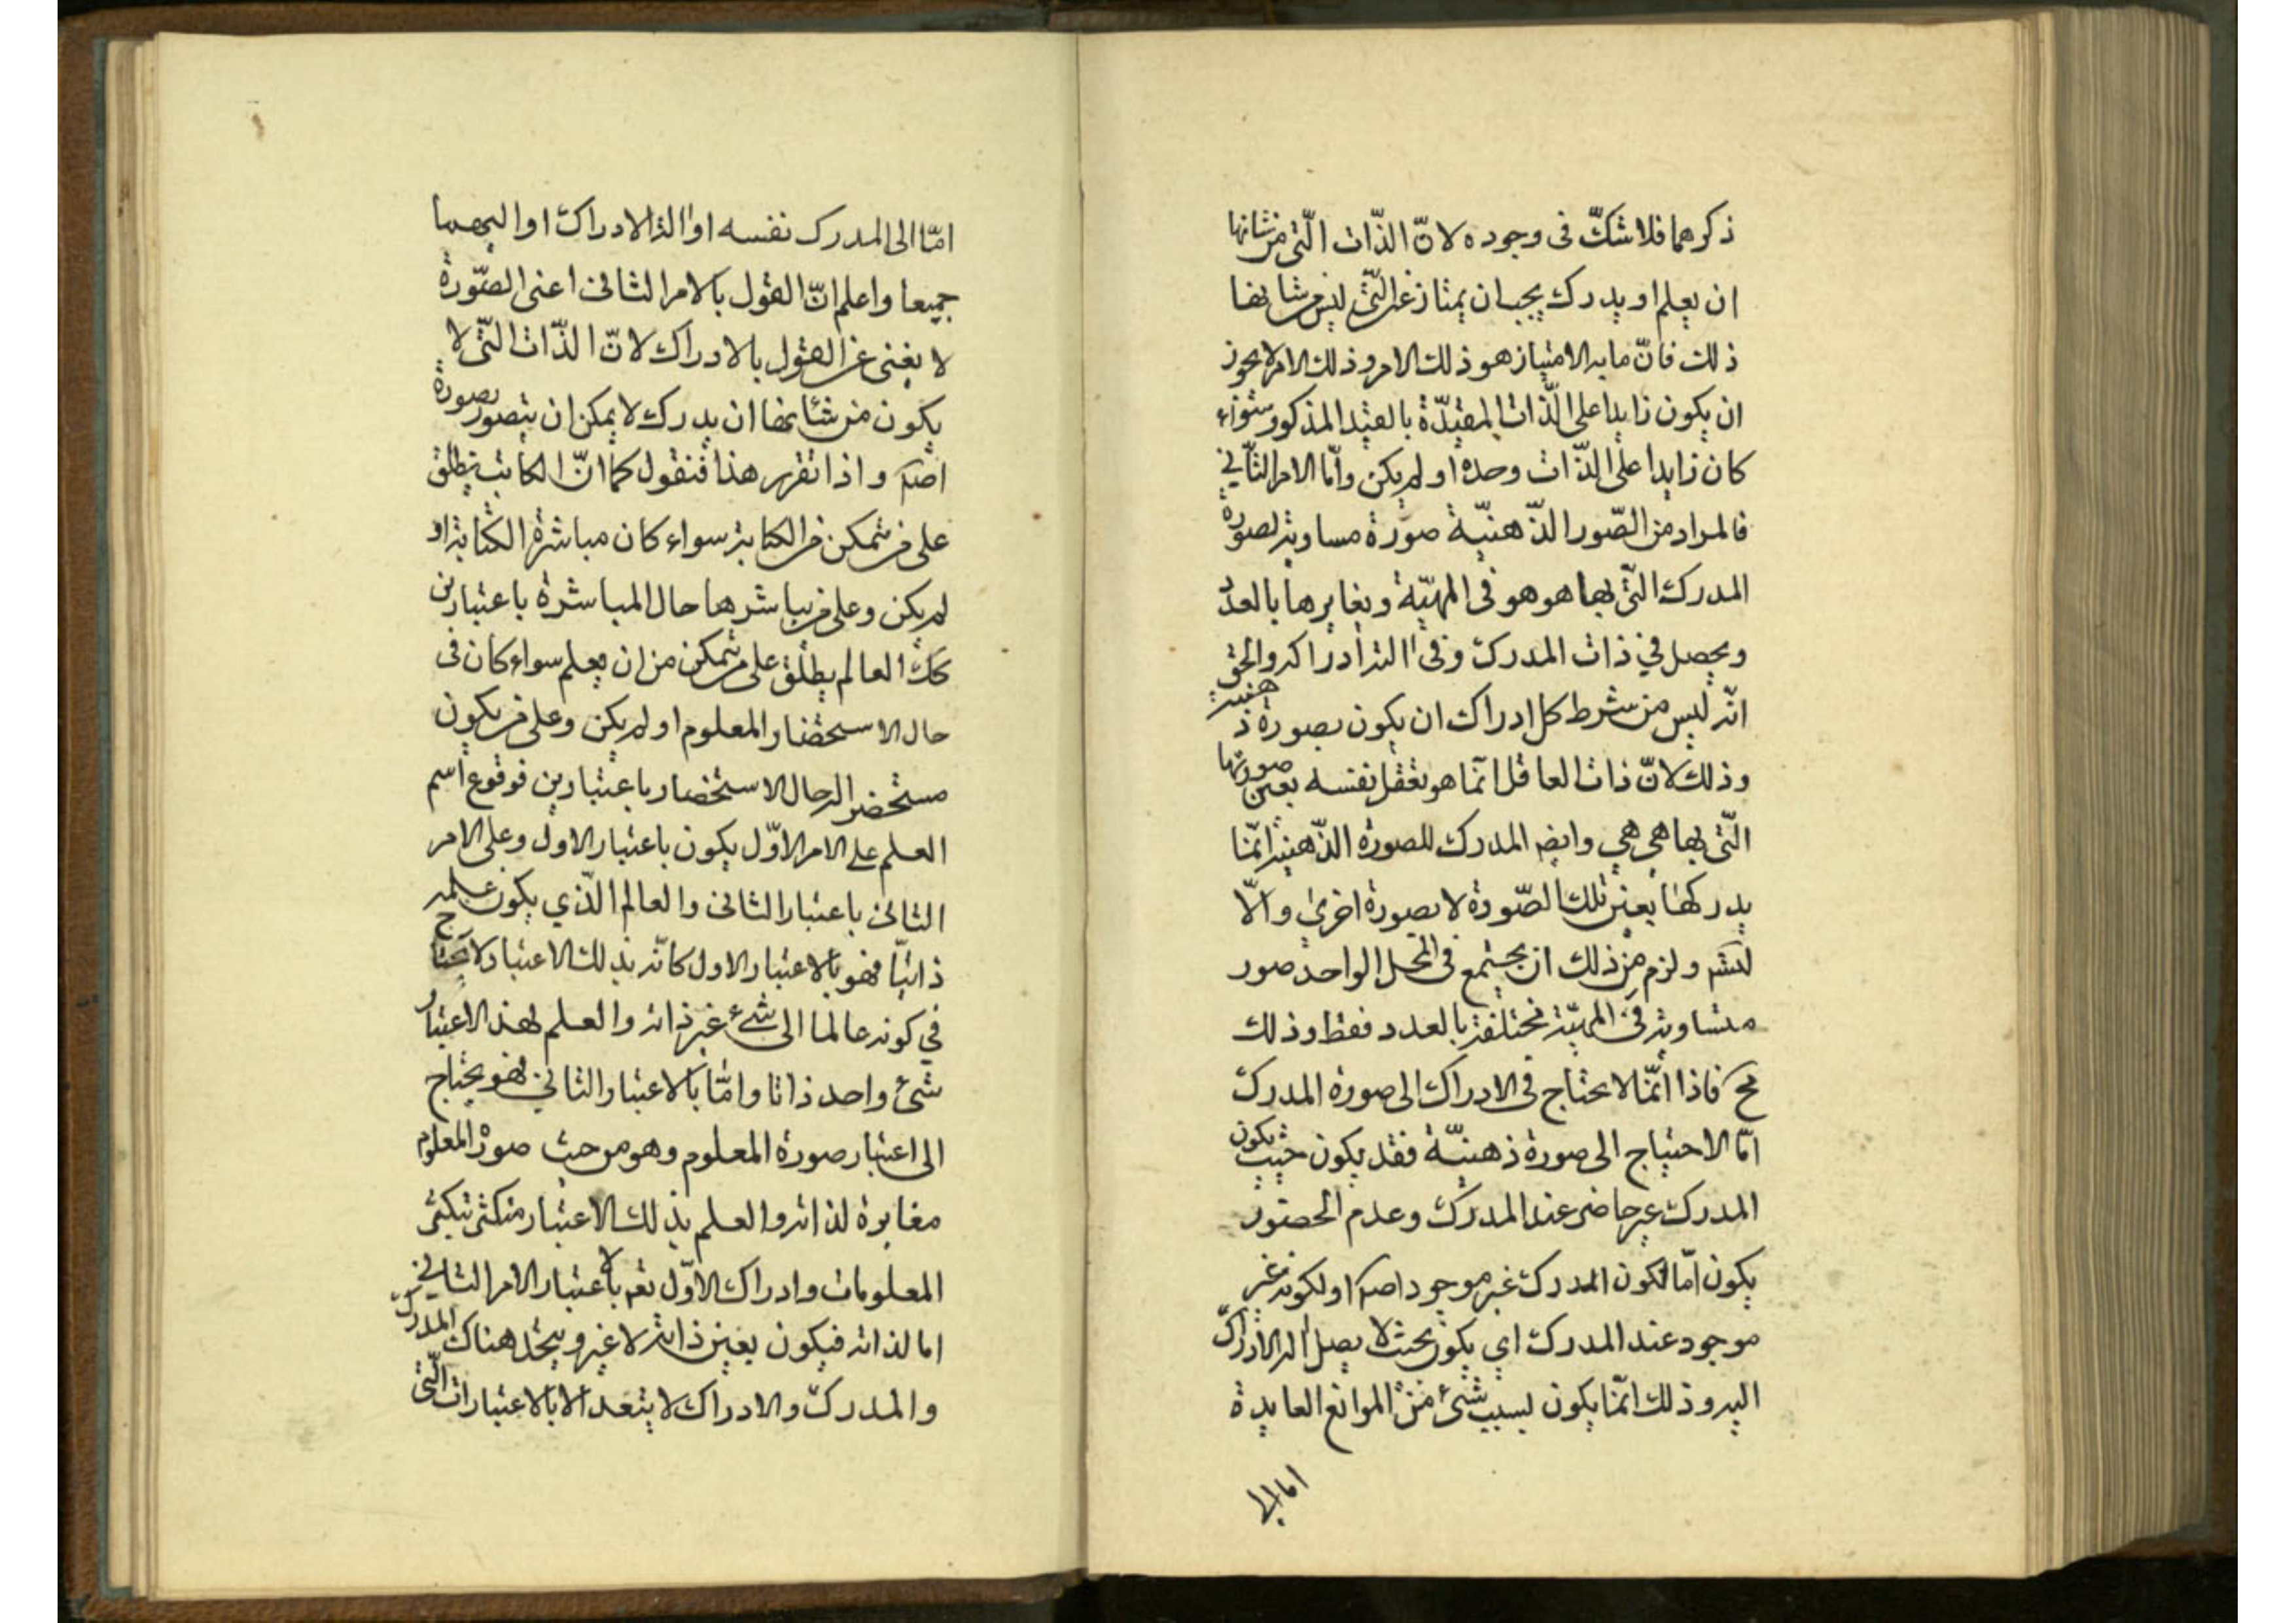 ذكرهما فلا شكّ فى وجوده لانّ الذّات الّتى من شانها
ان يعلم او يدرك يجب ان يمتاز عن الّتى ليس من شانها
ذلك فانّ ما به الامتياز هو ذلك الامر وذلك الامر لا يجوز
ان يكون زايدا على الذّات المقيّدة بالقيد المذكور سواء
كان زايدا على الذّات وحده او لم يكن وامّا الامر الثّاني
فالمراد من الصّور الذّهنيّة صورة مساوية لصورة
المدرك الّتى بها هو هو فى المهيّة ويغايرها بالعدد
ويحصل في ذات المدرك وفى الة ادراكه والحق
انّه ليس من شرط كل ادراك ان يكون بصورة ذهنية
وذلك لانّ ذات العاقل انّما هو تعقل نفسه بعين صورتها
الّتى بها هى هى وايضا المدرك للصورة الذّهنية انّما
يدركها بعين تلك الصّورة لا بصورة اخرى والّا
لتسلسل ولزم من ذلك ان يجتمع فى المحل الواحد صور
متساوية فى المهيّة مختلفة بالعدد فقط وذلك
مح فاذا انّما لا يحتاج فى الادراك الى صورة المدرك
امّا الاحتياج الى صورة ذهنيّة فقد يكون حيث يكون
المدرك غير حاضر عند المدرك وعدم الحضور
يكون امّا لكون المدرك غير موجود اصلا او لكونه غير
موجود عند المدرك اي يكون بحيث لا يصل اليه الادراك
اليه وذلك انّما يكون لسبب شئ من الموانع العايدة
اما الى
امّا الى المدرك نفسه او الة الادراك او اليهما
جميعا واعلم انّ القول بالامر الثانى اعنى الصّورة
لا يغنى عن القول بالادراك لانّ الذّات الّتى لا
يكون من شانها ان يدرك لا يمكن ان يتصور بصورة
اصلا واذا تقرر هذا فنقول كما انّ الكاتب يطلق
على من يتمكن من الكتابة سواء كان مباشرة الكتابة او
لم يكن وعلى من يباشرها حال المباشرة باعتبارين
كك العالم يطلق على من يتمكن من ان يعلم سواء كان فى
حال الاستحضار المعلوم او لم يكن وعلى من يكون
مستحضرا له حال الاستحضار باعتبارين فوقوع اسم
العلم على الامر الاوّل يكون باعتبار الاول وعلى الامر
الثانى باعتبار الثانى والعالم الّذي يكون علمه
ذاتيّا فهو بالاعتبار الاول كانّه بذلك الاعتبار لا يحتاج
في كونه عالما الى شئ غير ذاته والعلم بهذ الاعتبار
شئ واحد ذاتا وامّا بالاعتبار الثاني فهو يحتاج
الى اعتبار صورة المعلوم وهو من حيث صورة المعلوم
مغايرة لذاته والعلم بذلك الاعتبار متكثر بتكثر
المعلومات وادراك الاوّل تعم لا باعتبار الامر الثاني
اما لذاته فيكون بعين ذاته لا غير ويتحد هناك المدرك
والمدرك والادراك لا يتعدد الا بالاعتبارات الّتى